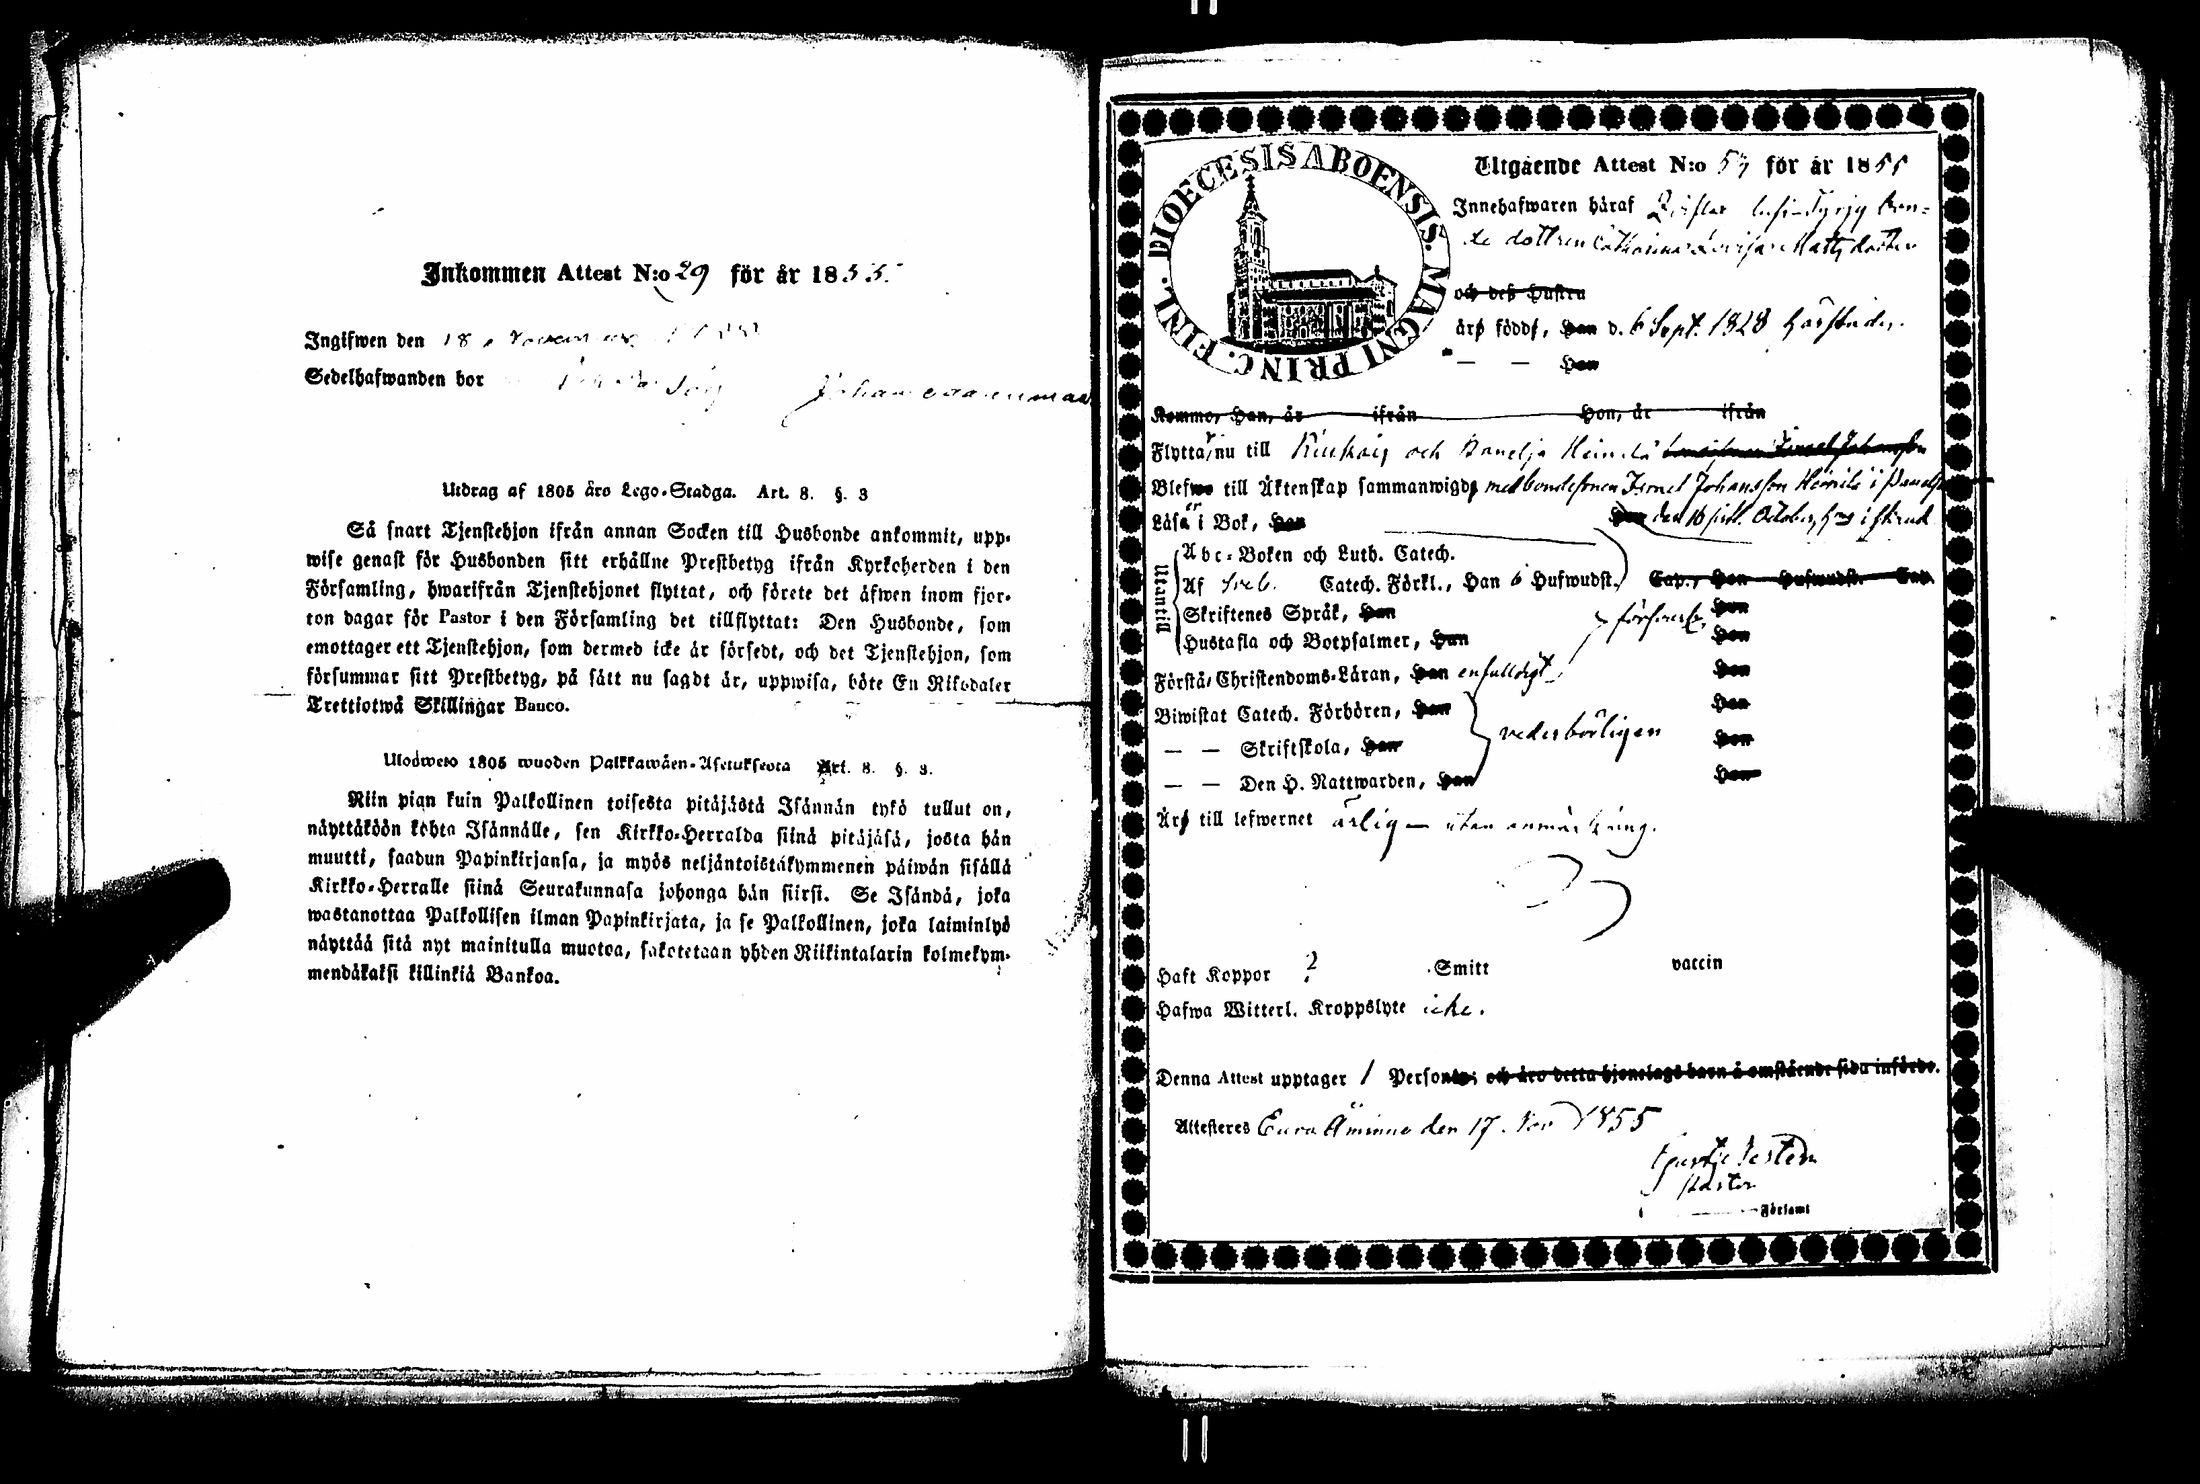 Inkommen Attest N:o 29 för år 1855.
Ingifwen den 18
Sedelhafwanden bor
Utdrag af 1805 års Lego-Stadga. Art. 8. §. 3
Så snart Tjenstehjon ifrån annan Socken till Husbonde ankommit, upp-
wise genast för Husbonden sitt erhållne Prestbetyg ifrån Kyrkoherden i den
Församling, hwarifrån Tjenstehjonet flyttat, och förete det äfwen inom fjor-
ton dagar för Pastor i den Församling det tillflyttat: Den Husbonde, som
emottager ett Tjenstehjon, som dermed icke är försedt, och det Tjenstehjon, som
försummar sitt Prestbetyg, på sätt nu sagdt är, uppwisa, böte En Riksdaler
Trettiotwå Skillingar Banco.
Ulosweto 1805 wuoden Palkkawäen-Asetuksesta Art. 8. §. 3.
Niin pian kuin Palkollinen toisesta pitäjästä Isännän tykö tullut on,
näyttäköön kohta Isännälle, sen Kirkko-Herralda siinä pitäjäsä, josta hän
muutti, saadun Papinkirjansa, ja myös neljäntoistakymmenen päiwän sisällä
Kirkko-Herralle siinä Seurakunnasa johonga hän siirsi. Se Isändä, joka
wastanottaa Palkollisen ilman Papinkirjata, ja se Palkollinen, joka laiminlyö
näyttää sitä nyt mainitulla muotoa, sakotetaan yhden Riikintalarin kolmekym-
mendäkaksi killinkiä Bankoa.
DIOECESIS ABOENSIS. MAGNI PRINC. FINL.
Utgående Attest N:o 57 för år 1855
Innehafwaren häraf
dottren Catharina Lovisa Mattsdotter
och deß Hustru
äro födde, Han d. 6 Sept. 1828 härstädes.
— — Hon
Kommo, Han, år ifrån Hon, år ifrån
Flyttar nu till Kiukais och Panelja Heinilä
Blefwo till Äktenskap sammanwigde med bondesonen Israel Johansson Heinilä i Panelja
Läser i Bok, Han Hon den 16 October
Utantill
Abc-Boken och Luth. Catech.
Af Sveb. Catech. Förkl., Han 6 Hufwudst. Cap., Hon Hufwudst. Cap.
Skriftenes Språk, Han Hon
Hustafla och Botpsalmer, Han Hon
Förstå Christendoms-Läran, Han enfaldigt Hon
Biwistat Catech. Förhören, Han Hon
— — Skriftskola, Han vederbörligen Hon
— — Den H. Nattwarden, Han Hon
Äro till lefwernet ärlig — utan anmärkning.
Haft Koppor ? Smitt vaccin
Hafwa Witterl. Kroppslyte icke.
Denna Attest upptager 1 Personer och äro detta hjonelags barn å omstående sida införde.
Attesteres Eura Åminne den 17 Nov 1855
Pastor
Församl